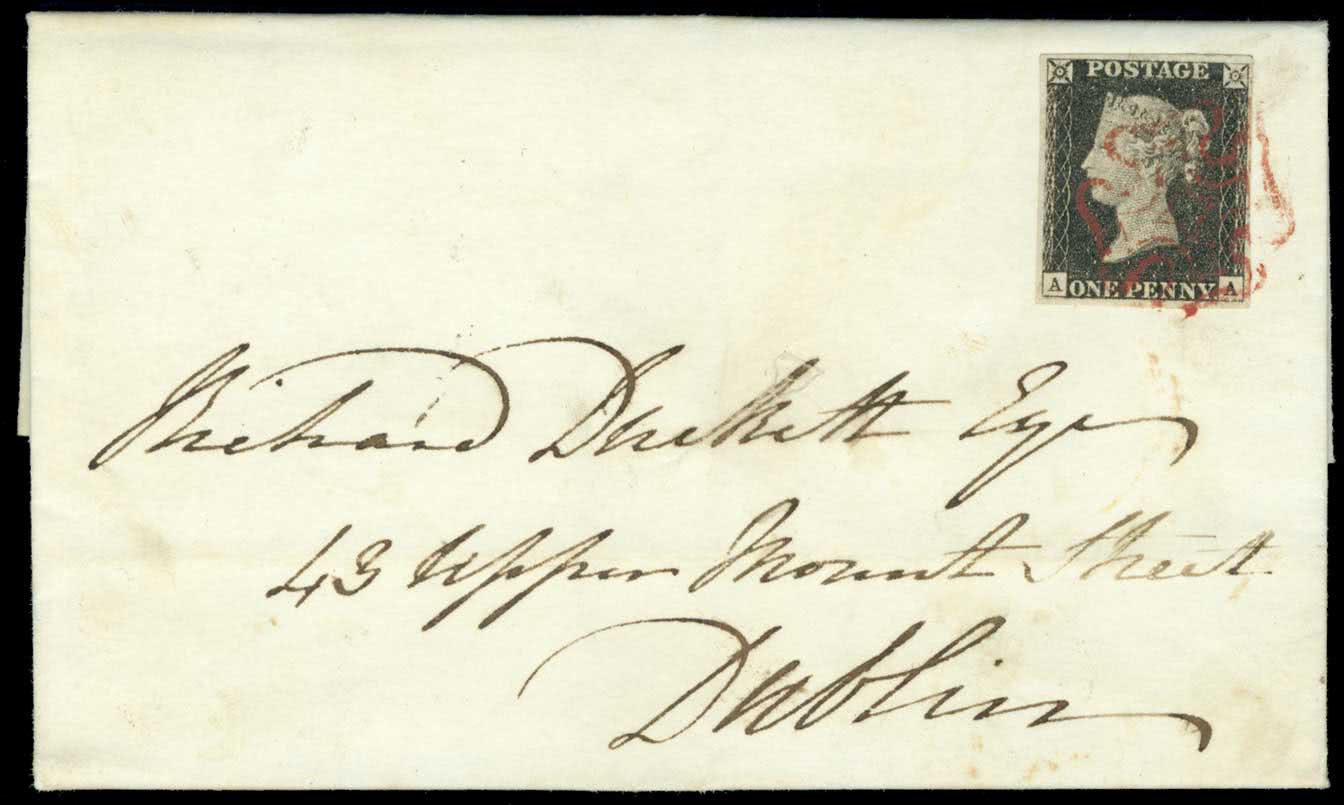 POSTAGE
A ONE PENNY A
Richard Duckett Esqr
43 Upper Mount Street
Dublin